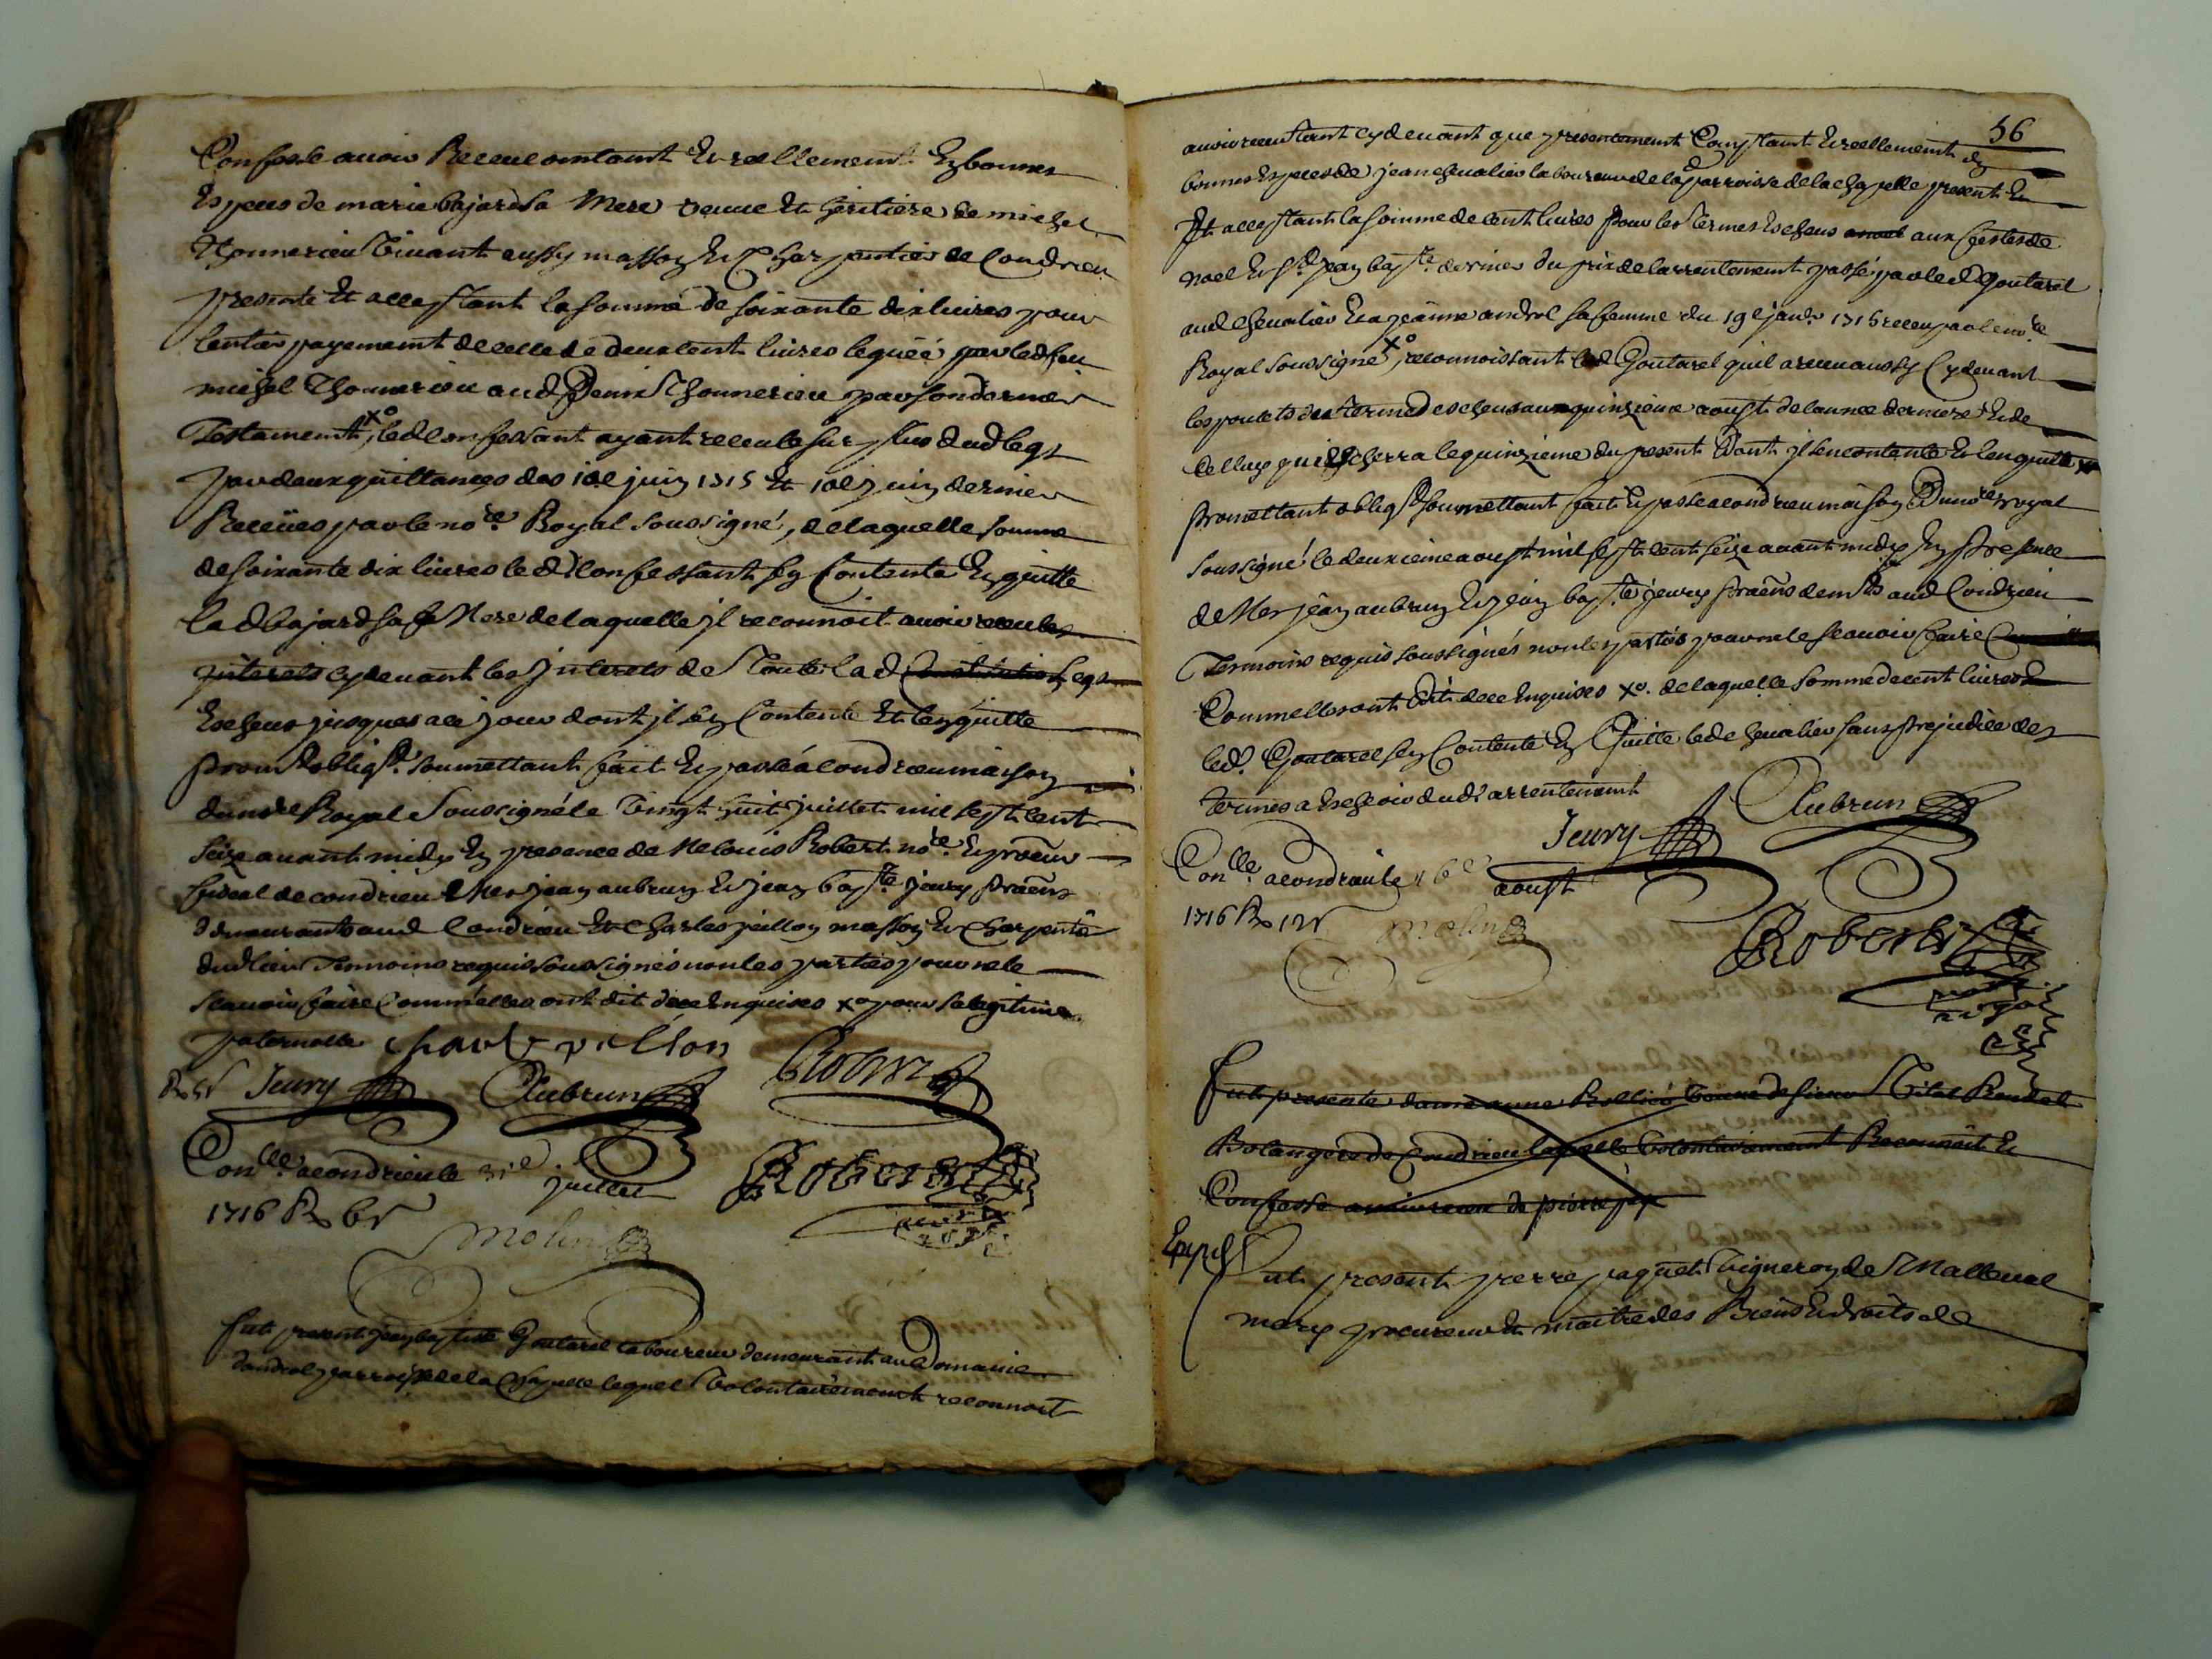 Confesse avoir Receu comtant Et reellement En bonnes
Especes de marie bajard sa Mere veuve Et heritiere de michel
Thonnerieu vivant aussy masson Et Charpentier de Condrieu
presente Et acceptant la somme de soixante dix livres pour
lentier payement de celle de deux cent livres leguéé par led feu
michel Thonnerieu aud Denis Thonnerieu par son dernier
Testament xo, led confessant ayant receu le surplus dud legt
par deux quittances des 10e juin 1715 Et 10e juin dernier
Receües par le nore Royal soussigné, de laquelle somme
de soixante dix livres led Confessant sen Contente En quitte
lad bajard sa Mere de laquelle jl reconnoit avoir receu les
jnterets cydevant les jnterets de Toute lad legt
Escheus jusques a ce jour dont jl sen Contente Et len quitte
prom obligt soumettant fait Et passé a condrieu maison
du nore Royal Soussigné le vingt huit juillet mil sept cent
seize avant midy En presence de Me louis Robert nore Et procur
fiscal de condrieu Mes jean aubrun Et jean bapte jeury praēns
demeurants aud Condrieu Et Charles pillon masson Et Charpentē
dud lieu Temoins requis soussignés non les parties pour ne le
scavoir faire Comm'elles ont dit de ce Enquises xo pour sa legitime
paternelle charle pillon
Jeury Aubrun Robert
Conlle a condrieu le 31e juillet
1716 R 6s
Robert
Molin
Fut present jean baptiste Goutarel laboureur demeurant au Domaine
dandrol parroisse de la Chapelle lequel volontairement reconnoit
56
avoir receu tant cydevant que presentement Comptant Et reellement En
bonnes Especes de jean chevalier laboureur de la parroisse de la chapelle present Et
Et acceptant la somme de cent livres pour les termes Escheus anoel aux festes de
noel Et St jean bapte derniers du prix de larrentement passé par led Goutarel
aud chevalier Et a jeanne androl sa femme du 19e janvr 1715 receu par le nore
Royal soussigné xo, reconnoissant led Goutarel quil a receu aussy Cydevant
les poulets des termes escheus au quinzieme aoust de lannee derniere Et de
Celluy qui Escherra le quinzieme du present dont jl sen contente Et len quitte xo
promettant obligt soumettant fait Et passé a condrieu maison Du nore royal
soussigné le deuxieme aoust mil sept cent seize avant midy En presence
de Mes jean aubrun Et jean bapte jeury praēns demts aud Condrieu
Temoins requis soussignés non les parties pour ne le scavoir faire
Comm'elles ont dit de ce Enquises xo. de laquelle somme de cent livres
led. Goutarel sen Contente En Quitte led chevalier sans prejudice des
termes a Escheoir dudt arrentement
Jeury Aubrun
Conlle a condrieu le 6e aoust
1716 R 12s
Molin
Robert
Fut presente dame anne Rollier veuve de sieur vital
Bolangere de Condrieu laquelle volontairement Reconnoit Et
Confesse avoir receu de pierre
Expdt
Fut present pierre paquet Vigneron de Malleval
mary procureur Et maitre des Biens Et droits de